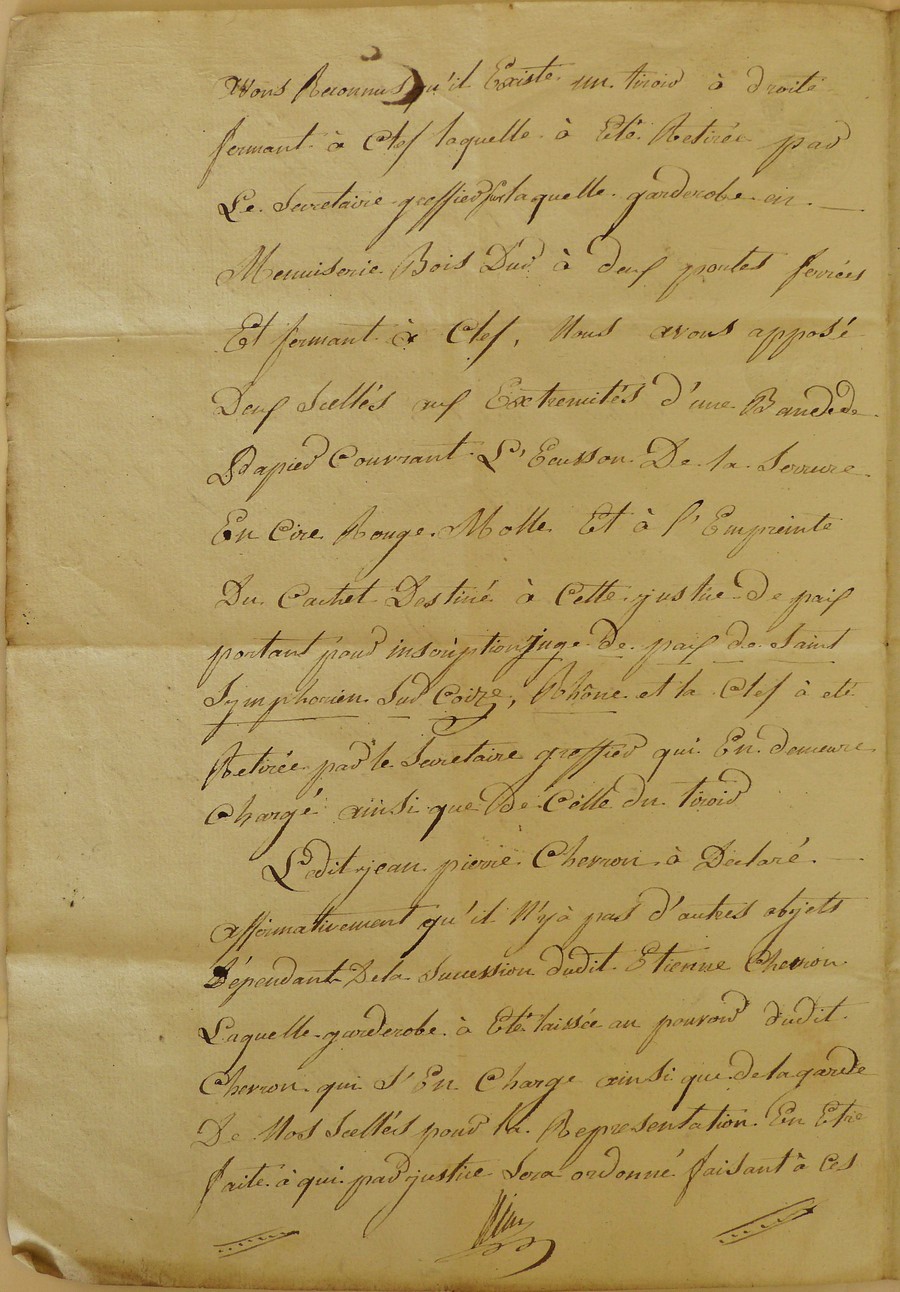 avons Reconnus qu'il Existe un tiroir à droite
fermant à Clef laquelle à Eté Retirée par
Le Secretaire greffier sur laquelle garderobe en
Menuiserie Bois Dur à deux portes ferrées
Et fermant à Clef, Nous avons apposé
Deux Scellés aux Extremités d'une Bande de
Papier Couvrant L'Ecusson De la Serrure
En Cire Rouge Molle Et à l'Empreinte
Du Cachet Destiné à Cette justice De paix
portant pour inscription juge de paix de Saint
Symphorien Sur Coize, Rhône et la Clef à eté
Retirée par le Secretaire greffier qui En demeure
Chargé ainsi que De Celle du tiroir
Ledit jean pierre Chevron à Déclaré
affirmativement qu'il N'y à pas d'autres objets
Dépendant De la Succession dudit Etienne Chevron
Laquelle garderobe à Eté laissée au pouvoir dudit
Chevron qui S'En Charge ainsi que de la garde
De Nos Scellés pour la Representation En Etre
faite à qui par justice Sera ordonné faisant à Ces